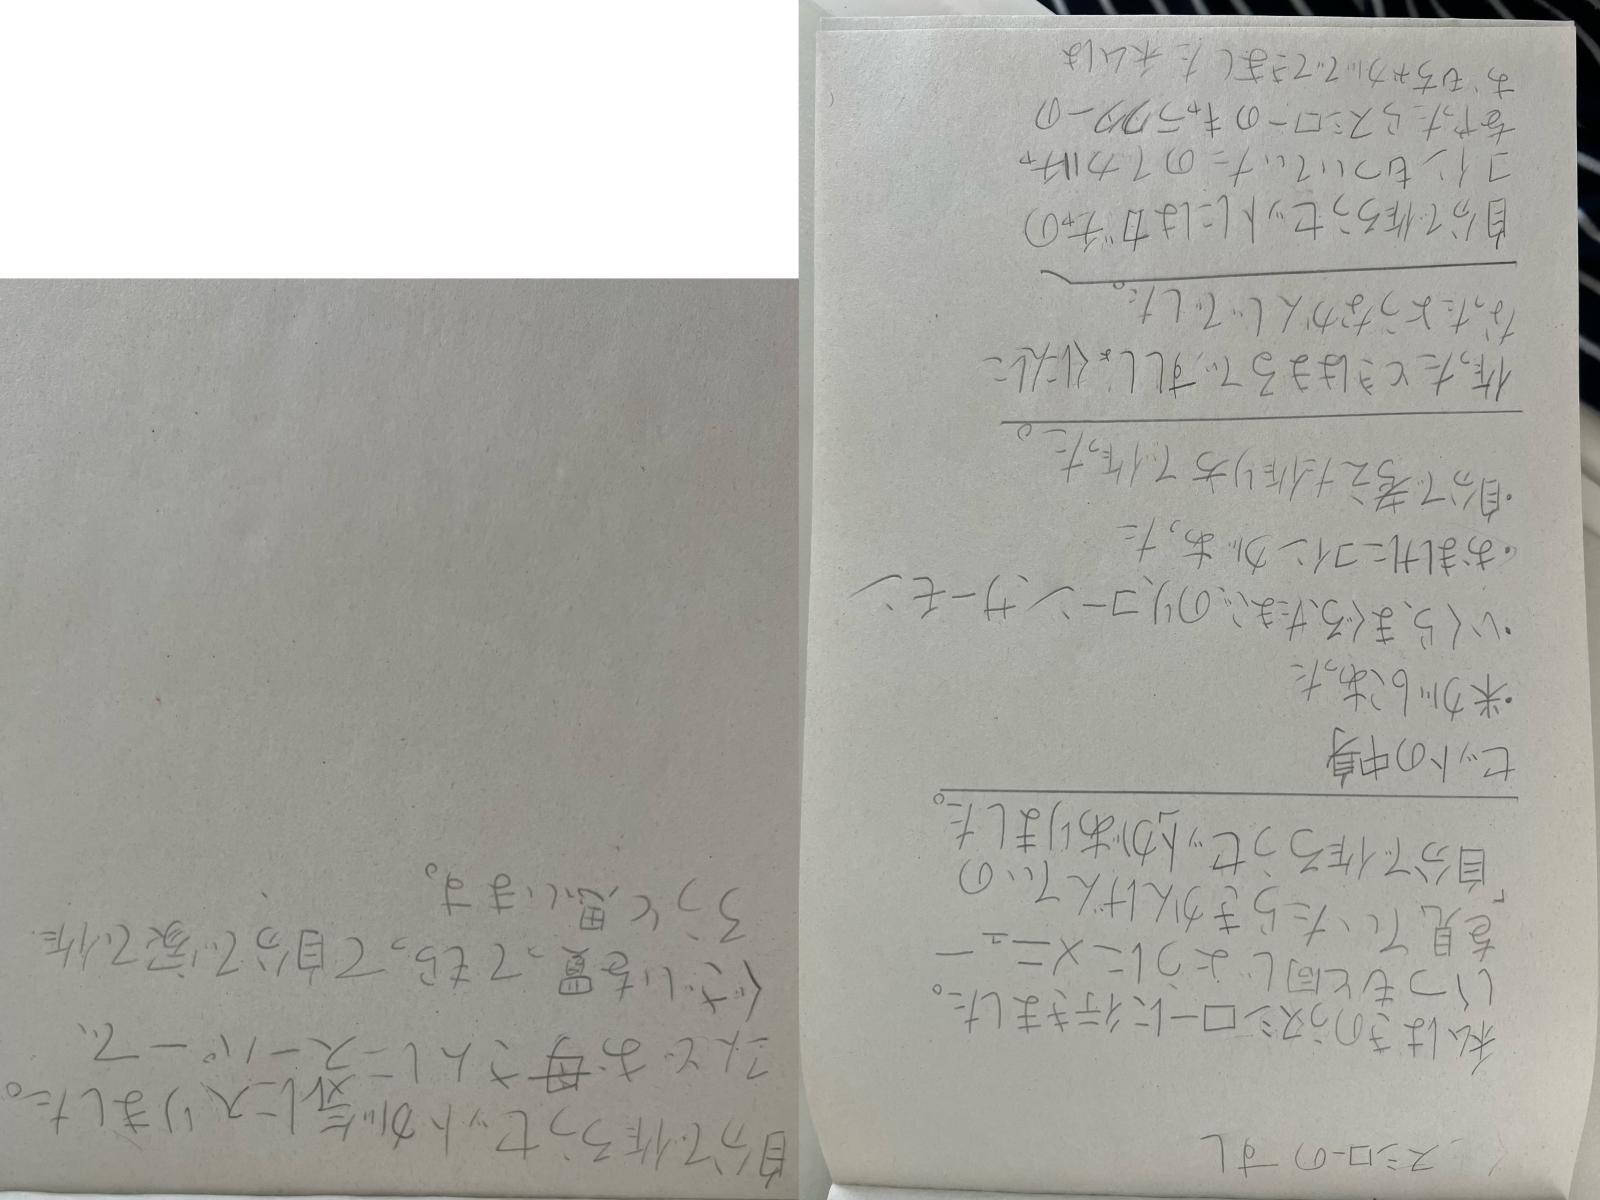 スシローのすし
私はきのうスシローに行きました。
いつもと同じようにメニュー
を見ていたらきかんげんていの
「自分で作ろうセット」がありました。
セットの中身
・米が6こあった
・いくら、まぐろ、たまご、のり、コーン、サーモン
・おまけにコインがあった
・自分で考えた作り方で作った。
作ったときはまるですししょくにんに
なったようなかんじでした。
自分で作ろうセットにはガチャの
コインもついていたのでガチャ
をやったらスシローのキャラクターの
おもちゃがでてきました 私は
自分で作ろうセットが気に入りました。
こんどお母さんにスーパーで
ぐざいを買ってもらって自分で家で作
ろうと思います。